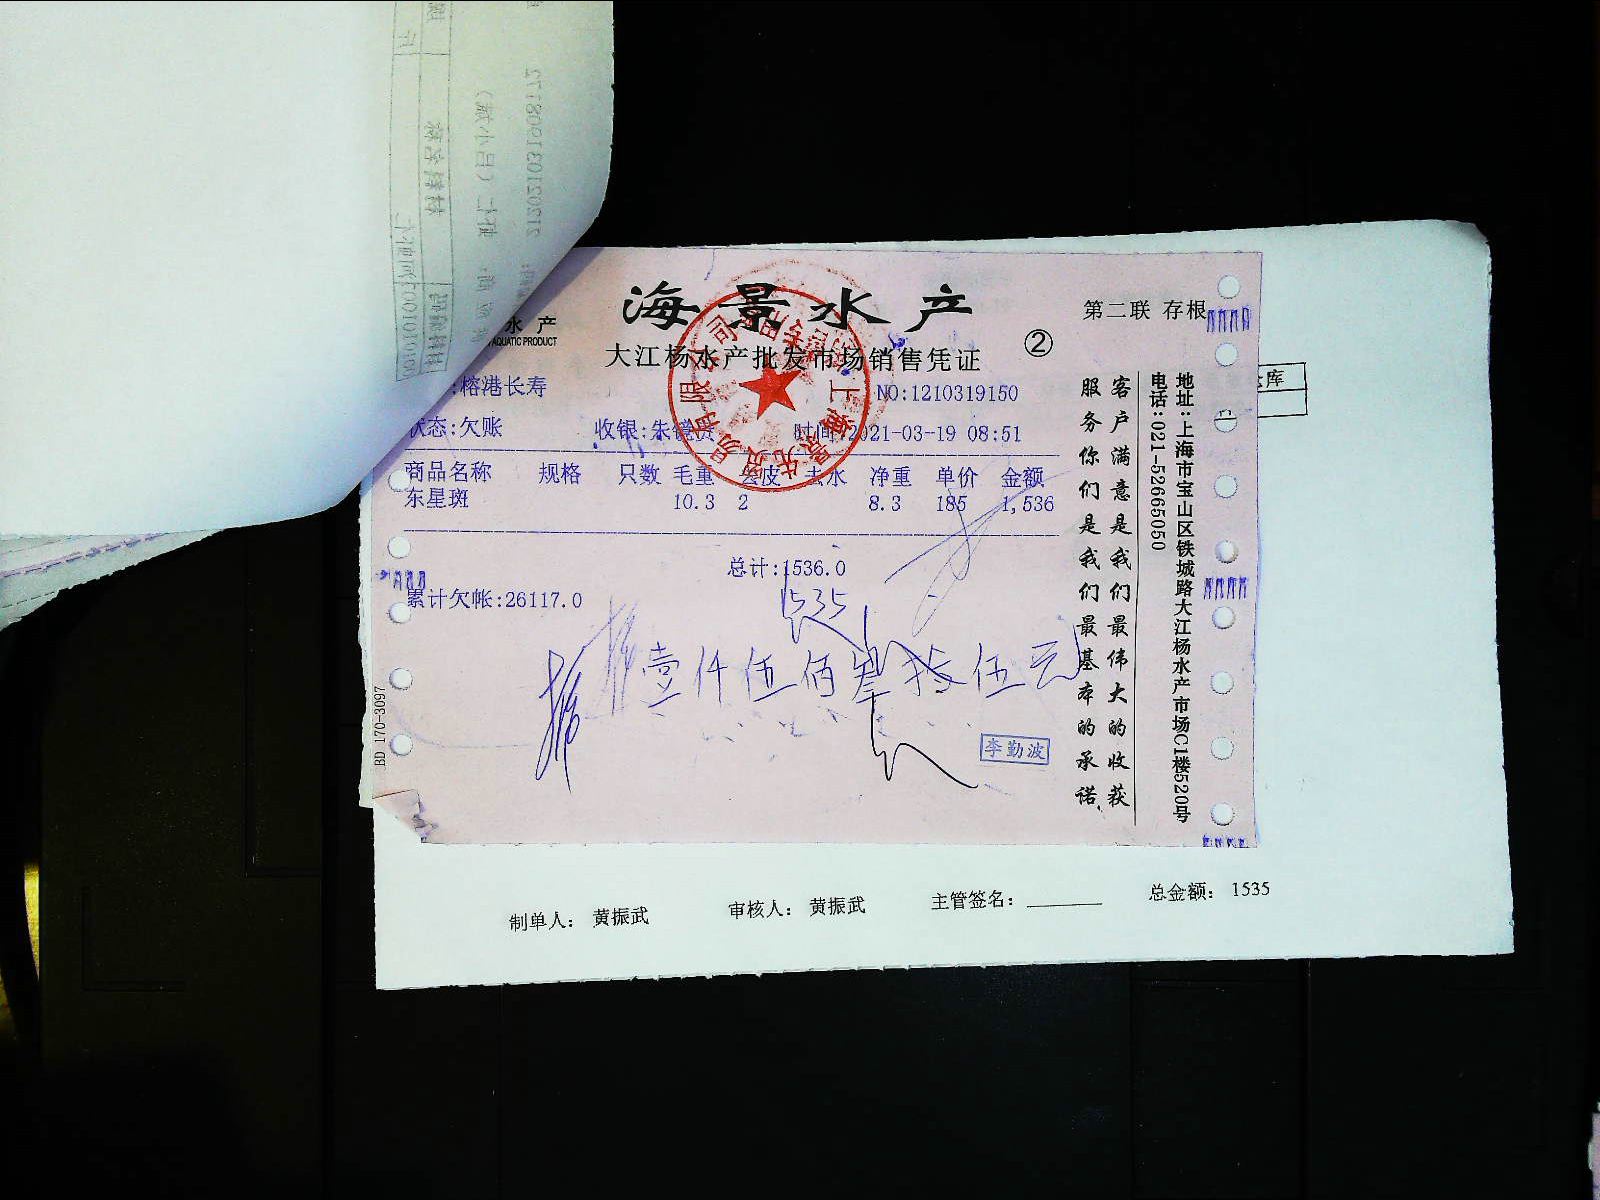 海景水产
水产
AQUATIC PRODUCT
大江杨水产批发市场销售凭证
②
第二联 存根
:榕港长寿
NO:1210319150
状态:欠账
收银:朱
时间:2021-03-19 08:51
商品名称 规格 只数 毛重 去皮 去水 净重 单价 金额
东星斑 10.3 2 8.3 185 1,536
总计:1536.0
累计欠帐:26117.0
1535
壹仟伍佰叁拾伍元
李勤波
客户满意是我们最伟大的收获
服务你们是我们最基本的承诺
地址:上海市宝山区铁城路大江杨水产市场C1楼520号
电话:021-52665050
BD 170-3097
库
制单人: 黄振武
审核人: 黄振武
主管签名:
总金额: 1535